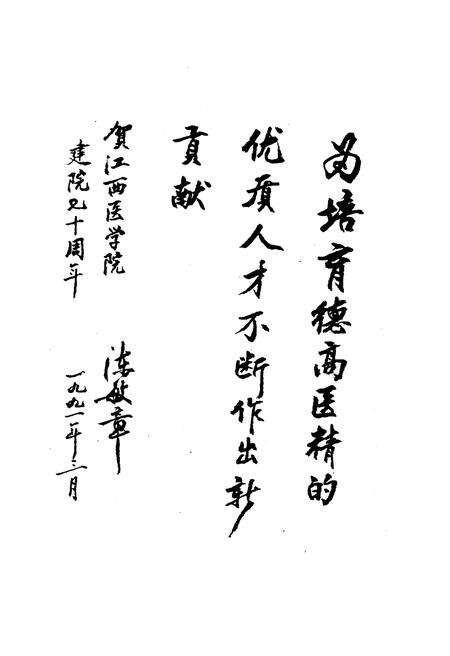 为培育德高医精的
优质人才不断作出新
贡献
贺江西医学院
建院七十周年
陈敏章
一九九一年三月